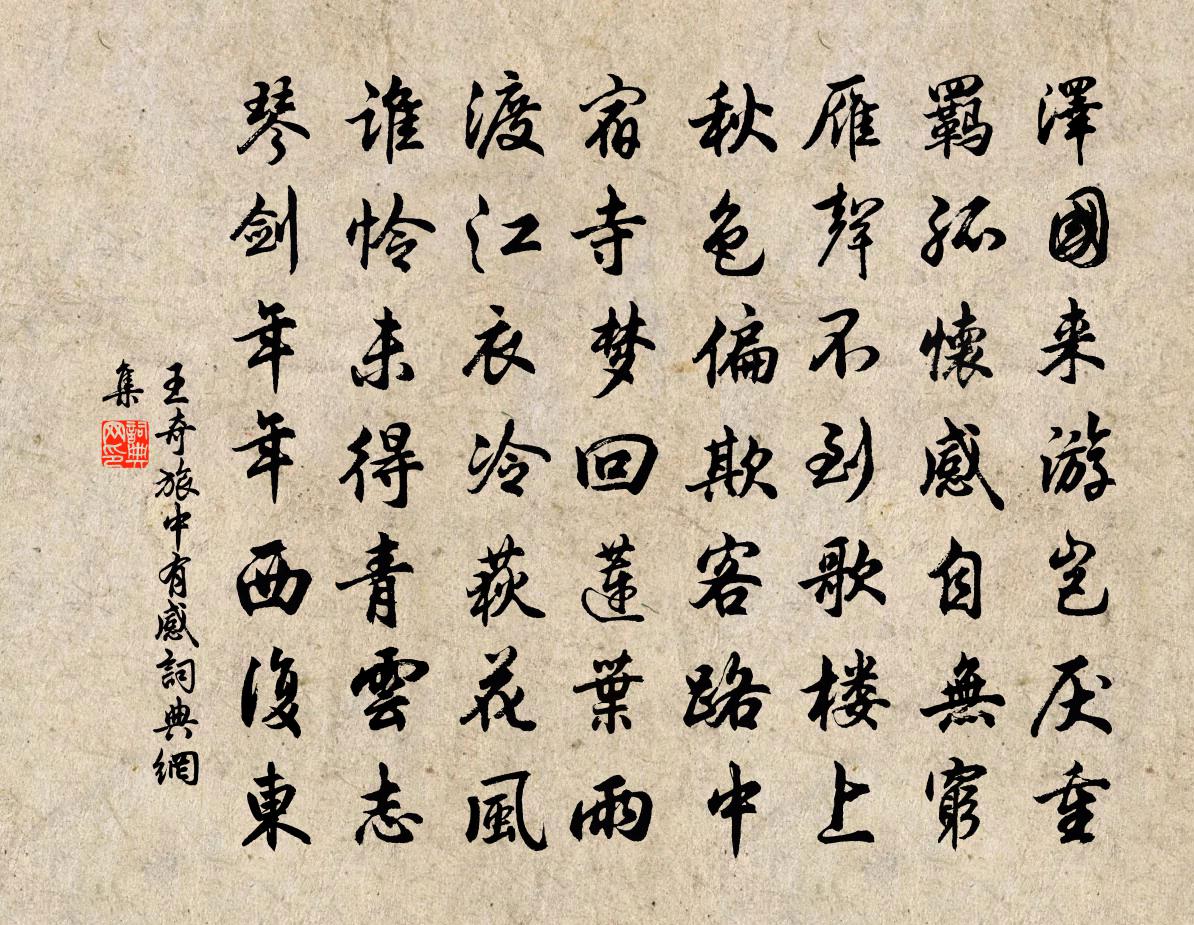 澤國来游岂厌重
羁孤懷感自無窮
雁聲不到歌楼上
秋色偏欺客路中
宿寺梦回蓮葉雨
渡江衣冷荻花風
谁怜未得青雲志
琴剑年年西復東
王奇旅中有感詞典網
集
詞典网印